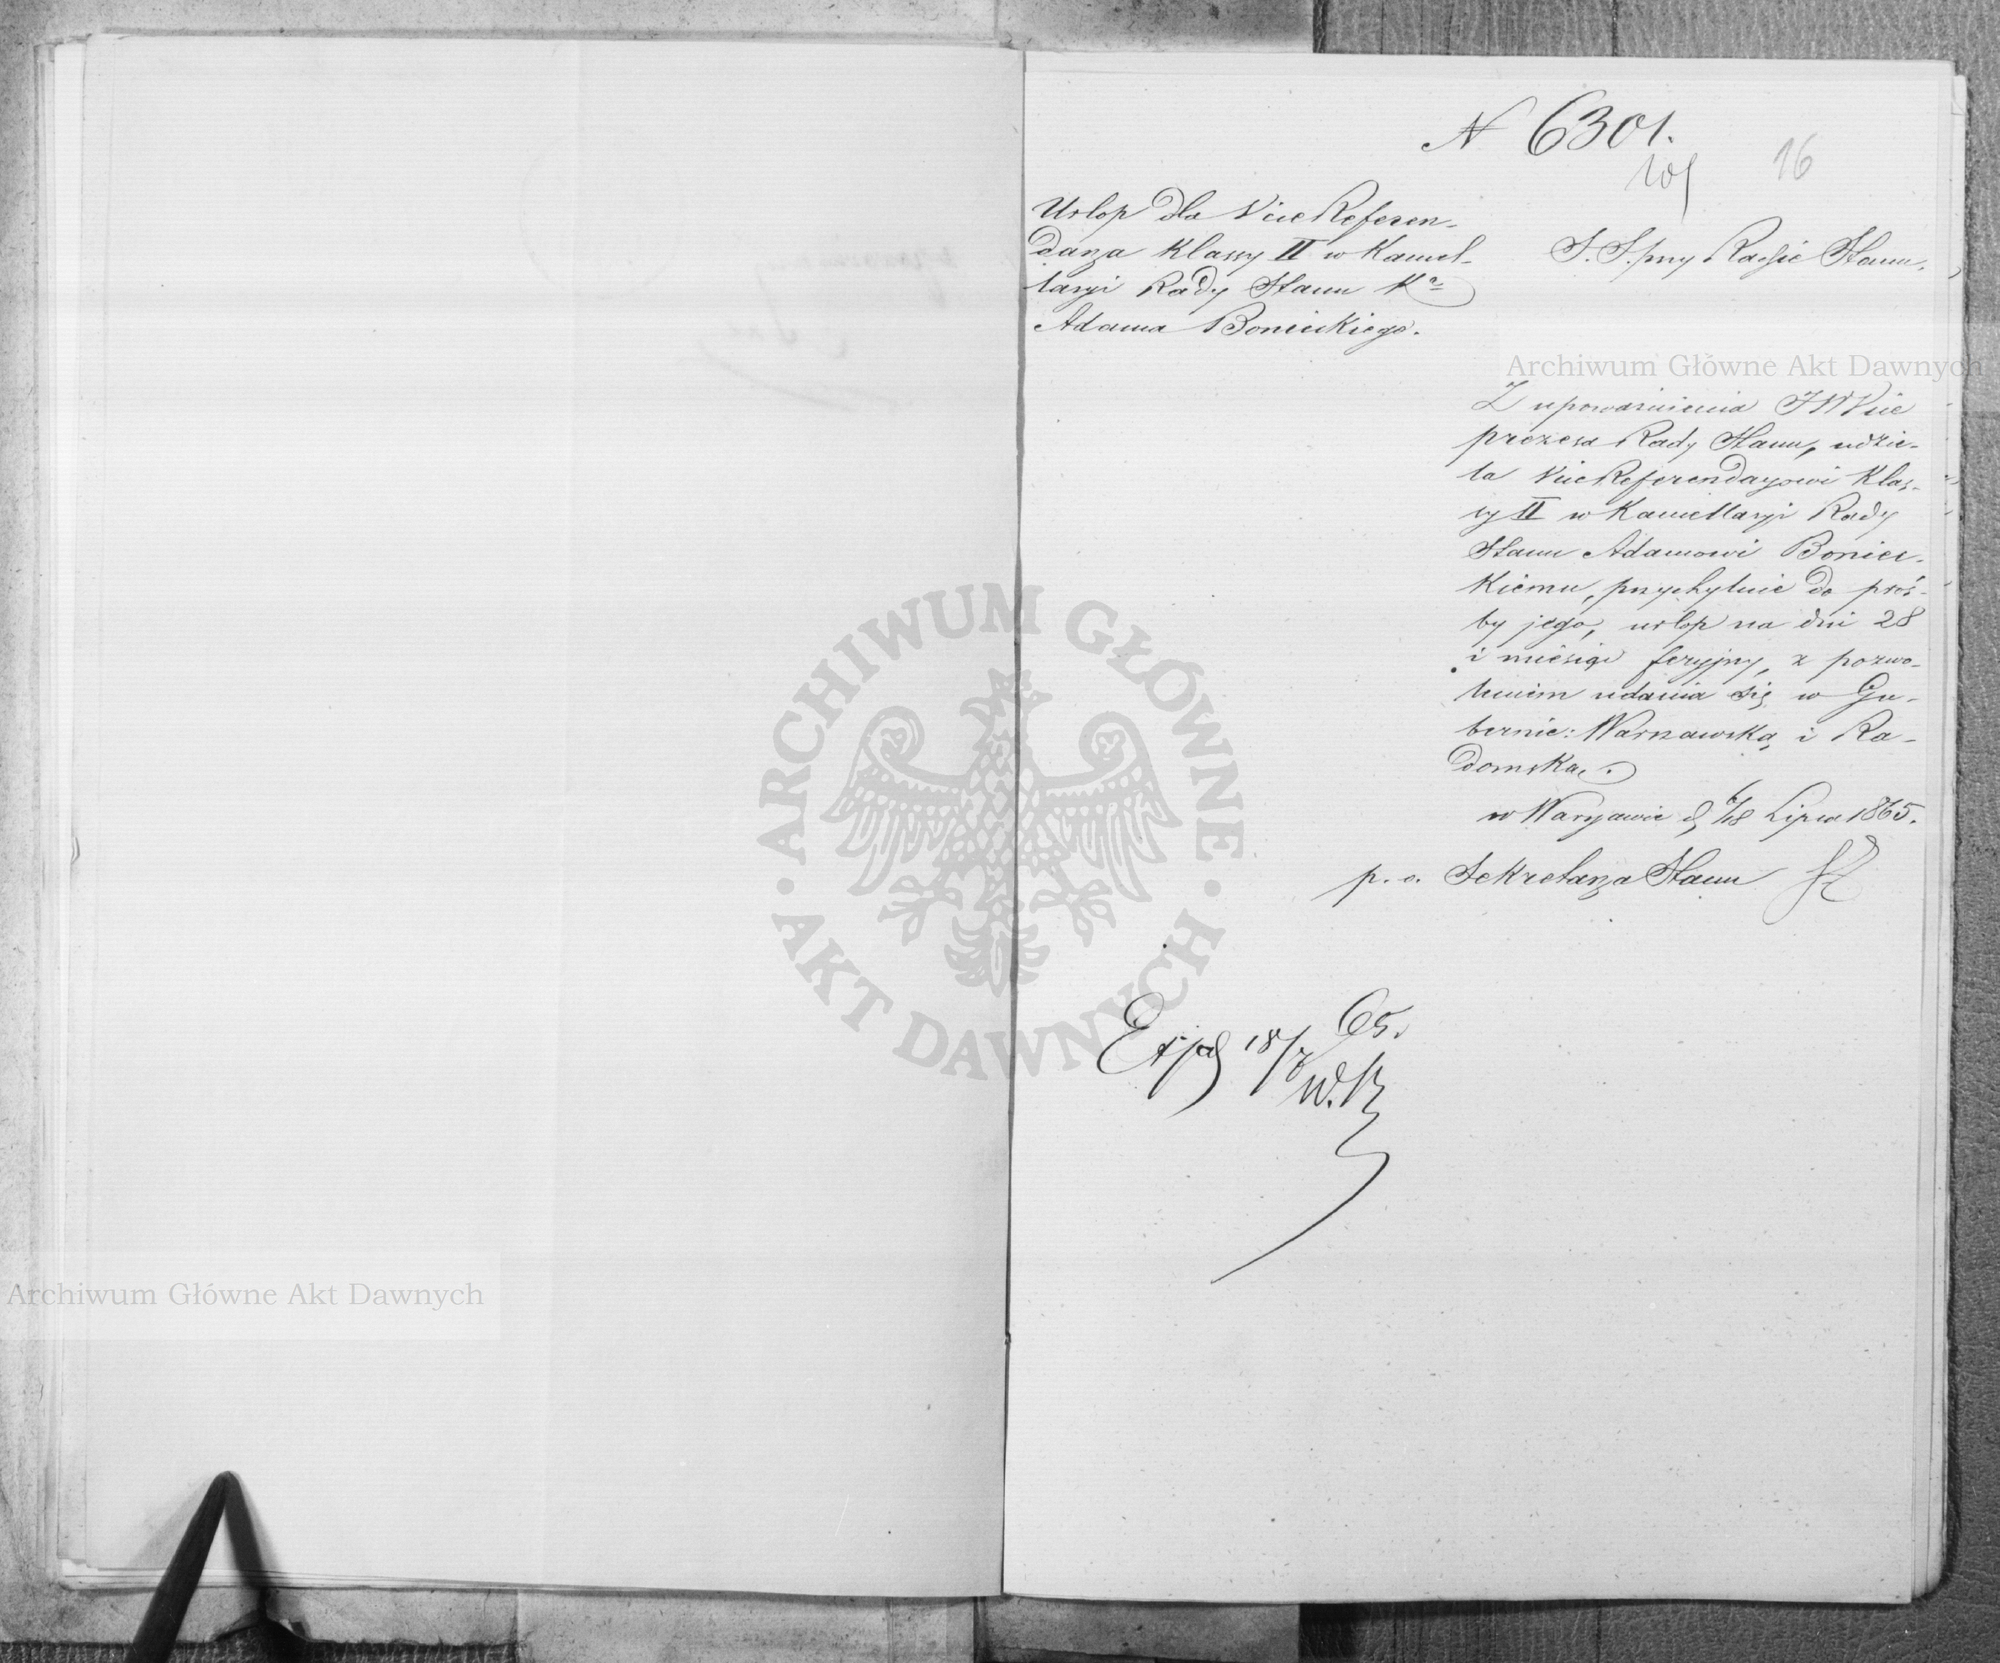 N 6301.
16
Urlop dla Vice Referen-
darza Klassy II w Kancel-
laryi Rady Stanu
Adama Bonieckiego.
S. S. przy Radzie Stanu.
Archiwum Główne Akt Dawnych
Z upoważnienia JW Vice
prezesa Rady Stanu, udzie-
la Vice Referendarzowi Klas-
sy II w Kancellaryi Rady
Stanu Adamowi Boniec-
kiemu, przychylnie do proś-
by jego, urlop na dni 28
i miesiąc feryjny, z pozwo-
leniem udania się w Gu-
bernie: Warszawską i Ra-
domską.
w Warszawie d. 6/18 Lipca 1865.
p. o. Sekretarza Stanu
Exp. 18/7 65.
ARCHIWUM GŁÓWNE
AKT DAWNYCH
Archiwum Główne Akt Dawnych